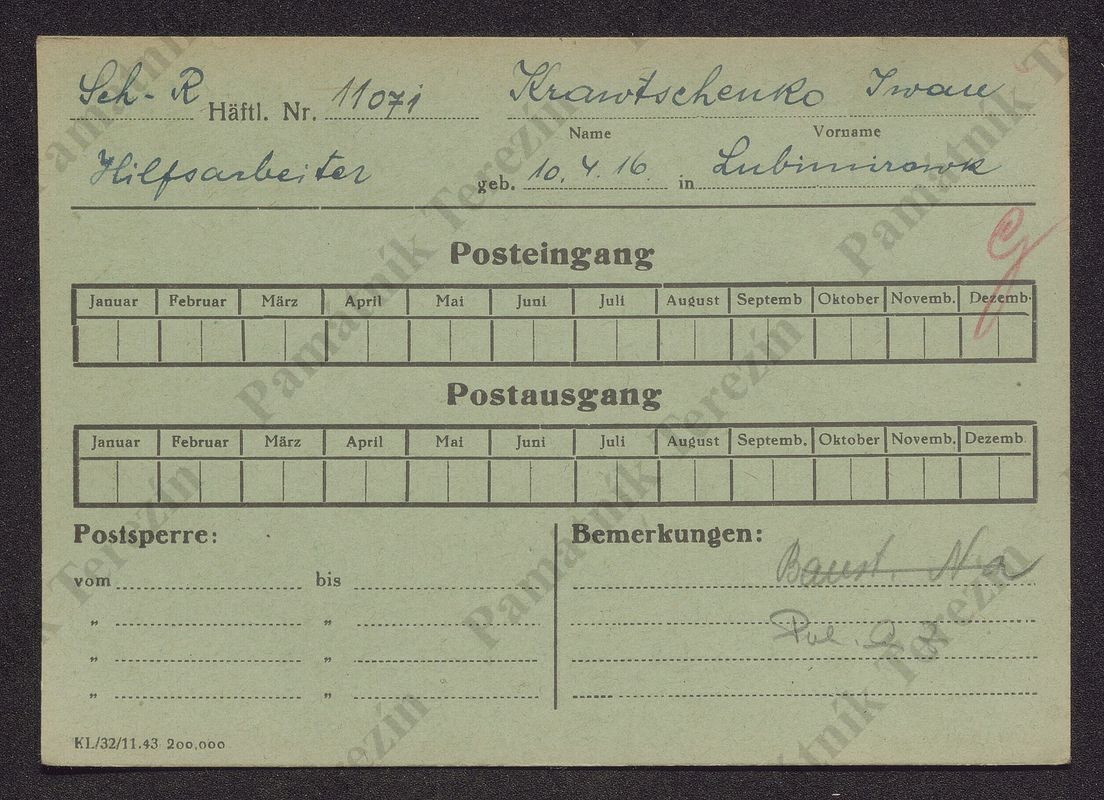 Sch-R Häftl. Nr. 11071 Krawtschenko Iwan
Name Vorname
Hilfsarbeiter geb. 10. 4. 16. in Lubimirowk
Posteingang
Januar Februar März April Mai Juni Juli August Septemb Oktober Novemb. Dezemb.
Postausgang
Januar Februar März April Mai Juni Juli August Septemb. Oktober Novemb. Dezemb.
Postsperre: Bemerkungen:
vom bis Baust.
„ „
„ „
„ „
KL/32/11.43 200,000
Památník Terezín